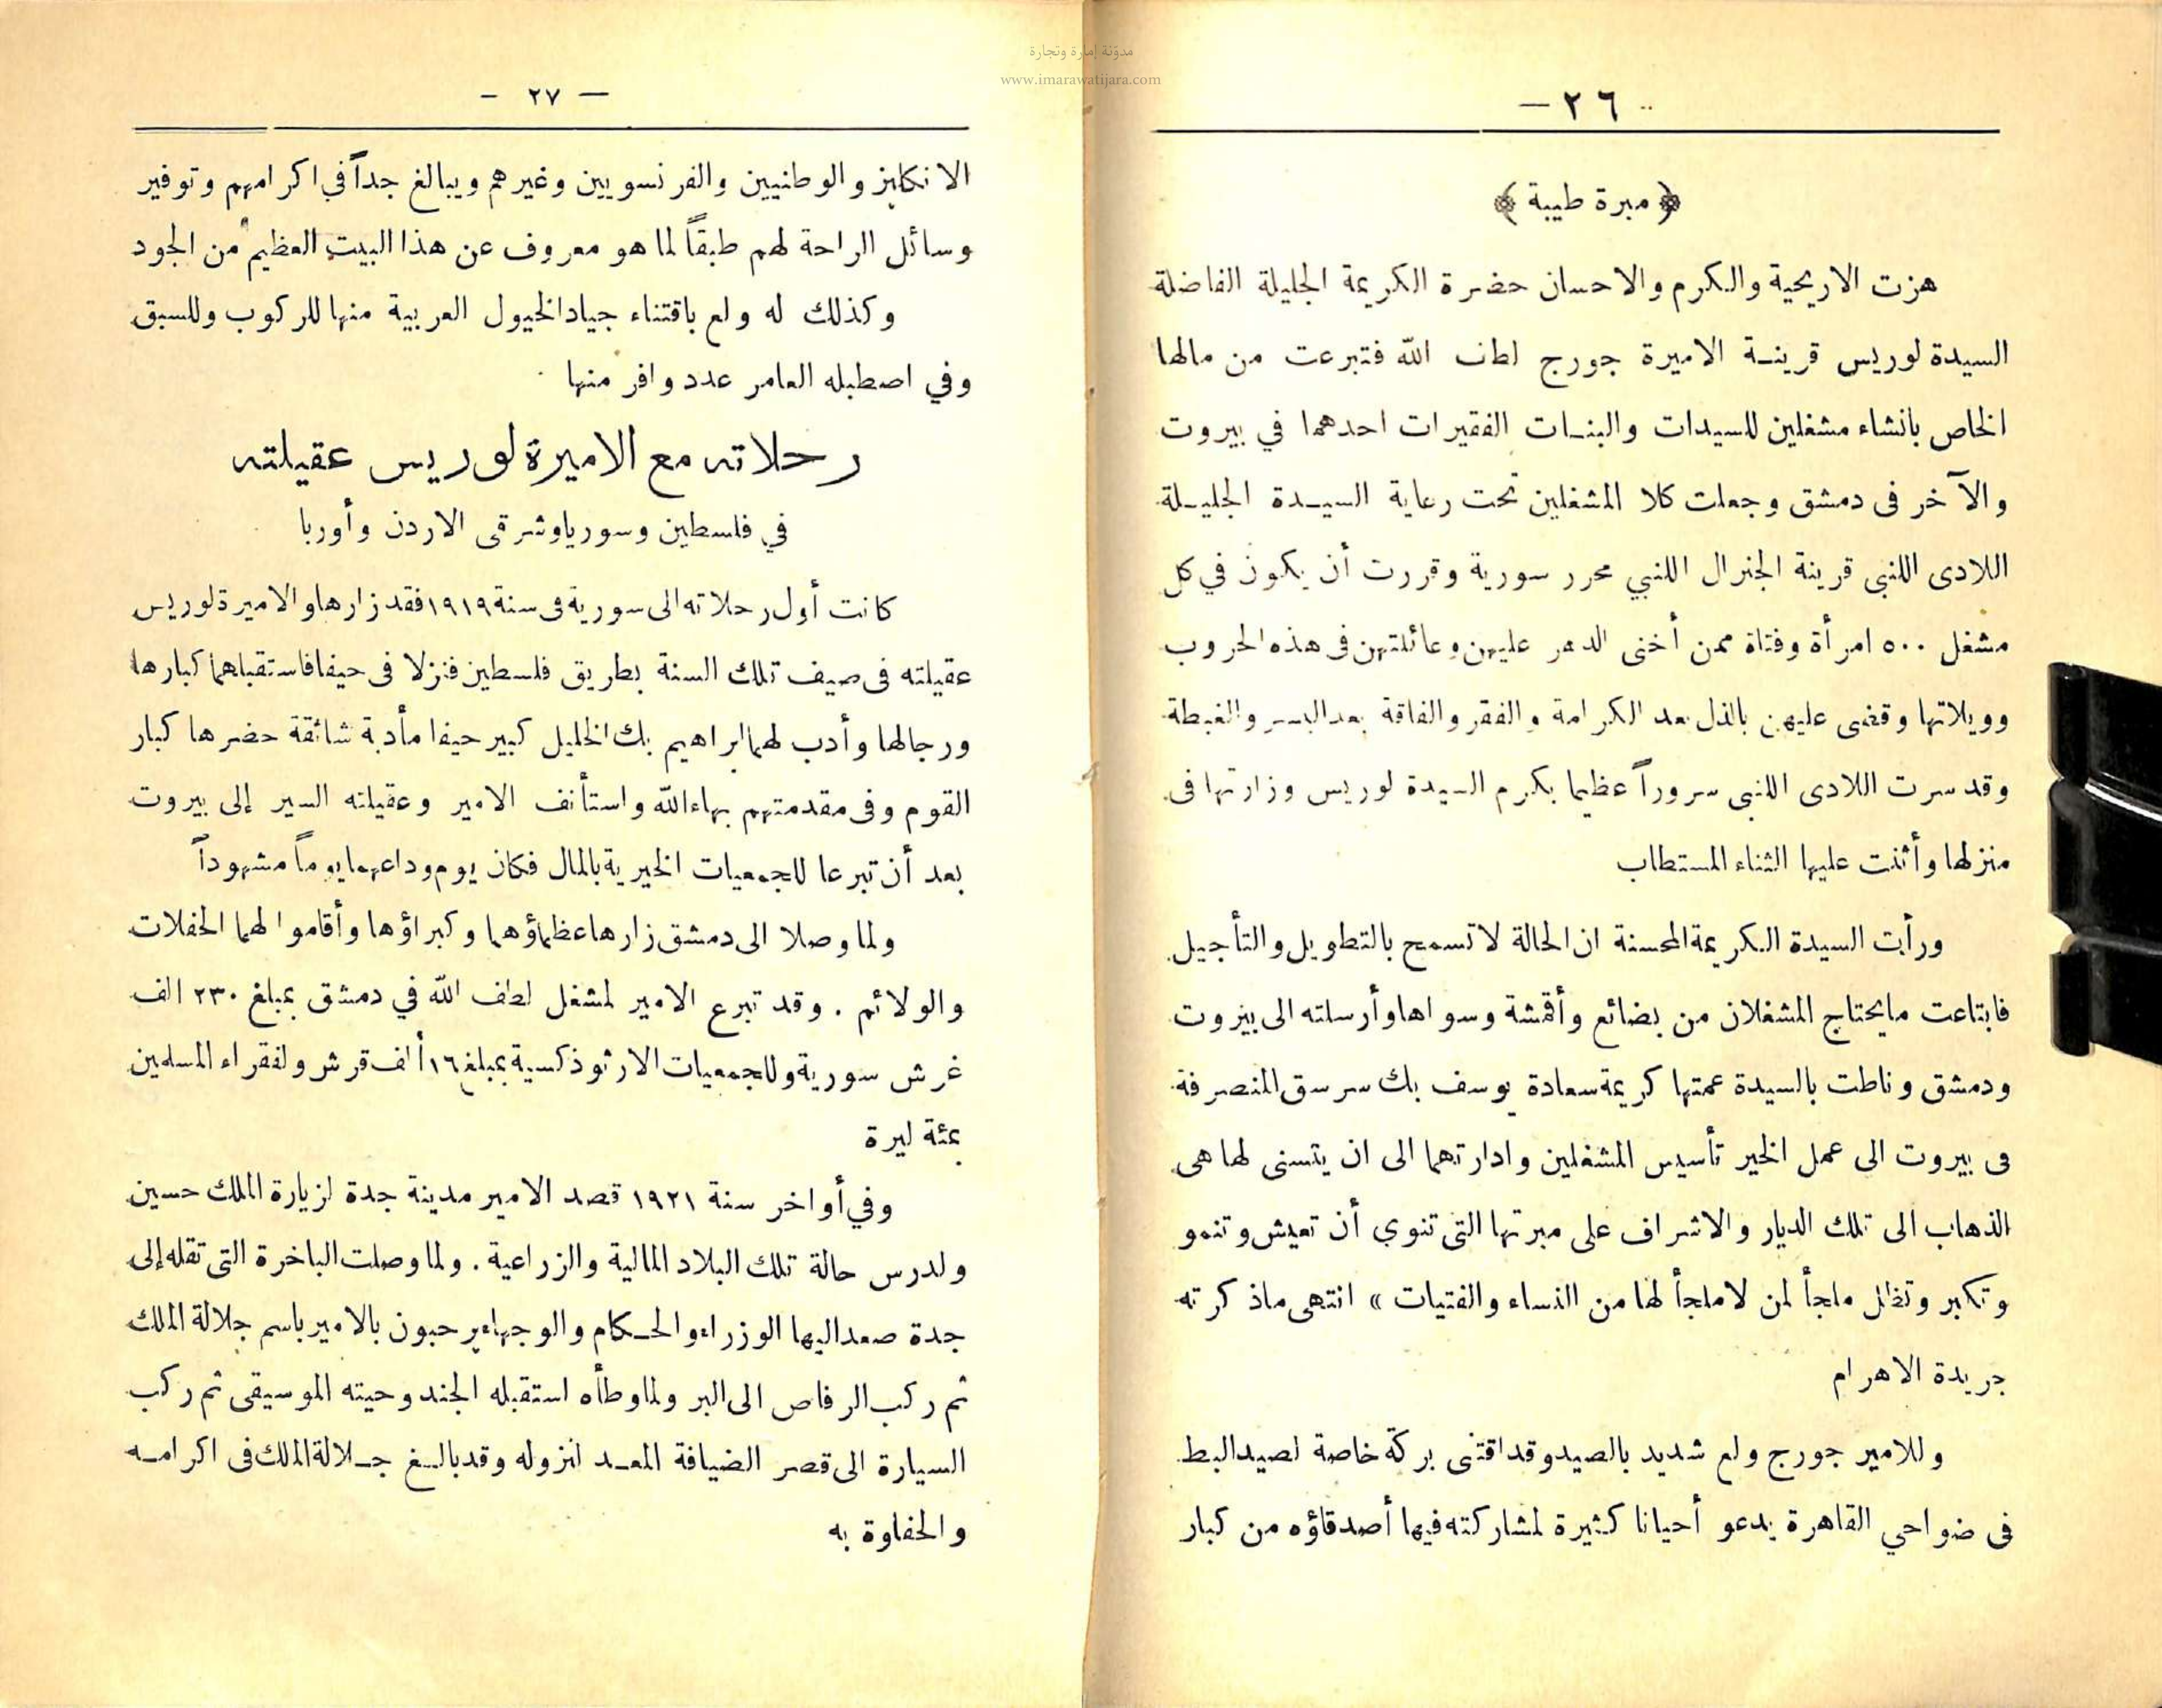 مدوّنة إمارة وتجارة
www.imarawatijara.com
— ٢٦
﴿ مبرة طيبة ﴾
هزت الاريحية والكرم والاحسان حضرة الكريمة الجليلة الفاضلة
السيدة لوريس قرينة الاميرة جورج لطف الله فتبرعت من مالها
الخاص بانشاء مشغلين للسيدات والبنات الفقيرات احدهما في بيروت
والآخر فى دمشق وجعلت كلا المشغلين تحت رعاية السيدة الجليلة
اللادى اللنبى قرينة الجنرال اللنبي محرر سورية وقررت أن يكون في كل
مشغل ٥٠٠ امرأة وفتاة ممن أخنى الدهر عليهن وعائلتهن فى هذه الحروب
وويلاتها وقضى عليهن بالذل بعد الكرامة والفقر والفاقة بعد اليسر والغبطة
وقد سرت اللادى اللنبى سروراً عظيما بكرم السيدة لوريس وزارتها فى
منزلها وأثنت عليها الثناء المستطاب
ورأت السيدة الكريمة المحسنة ان الحالة لا تسمح بالتطويل والتأجيل
فابتاعت مايحتاج المشغلان من بضائع وأقمشة وسواها وأرسلته الى بيروت
ودمشق وناطت بالسيدة عمتها كريمة سعادة يوسف بك سرسق المنصرفة
فى بيروت الى عمل الخير تأسيس المشغلين وادارتهما الى ان يتسنى لها هى
الذهاب الى تلك الديار والاشراف على مبرتها التى تنوي أن تعيش وتنمو
وتكبر وتظل ملجأ لمن لاملجأ لها من النساء والفتيات » انتهى ماذكرته
جريدة الاهرام
وللامير جورج ولع شديد بالصيد وقد اقتنى بركة خاصة لصيد البط
فى ضواحي القاهرة يدعو أحيانا كثيرة لمشاركته فيها أصدقاؤه من كبار
— ٢٧ -
الانكليز والوطنيين والفرنسويين وغيرهم ويبالغ جداً في اكرامهم وتوفير
وسائل الراحة لهم طبقاً لما هو معروف عن هذا البيت العظيم من الجود
وكذلك له ولع باقتناء جياد الخيول العربية منها للركوب وللسبق
وفي اصطبله العامر عدد وافر منها
رحلاته مع الاميرة لوريس عقيلته
في فلسطين وسوريا وشرقى الاردن وأوربا
كانت أول رحلاته الى سورية فى سنة ١٩١٩ فقد زارها والاميرة لوريس
عقيلته فى صيف تلك السنة بطريق فلسطين فنزلا فى حيفا فاستقبلهما كبارها
ورجالها وأدب لهما ابراهيم بك الخليل كبير حيفا مأدبة شائقة حضرها كبار
القوم وفى مقدمتهم بهاء الله واستأنف الامير وعقيلته السير إلى بيروت
بعد أن تبرعا للجمعيات الخيرية بالمال فكان يوم وداعهما يوماً مشهوداً
ولما وصلا الى دمشق زارها عظماؤها وكبراؤها وأقاموا لهما الحفلات
والولائم . وقد تبرع الامير لمشغل لطف الله في دمشق بمبلغ ٢٣٠ الف
غرش سورية وللجمعيات الارثوذكسية بمبلغ ١٦ ألف قرش ولفقراء المسلمين
بمئة ليرة
وفي أواخر سنة ١٩٢١ قصد الامير مدينة جدة لزيارة الملك حسين
ولدرس حالة تلك البلاد المالية والزراعية . ولما وصلت الباخرة التى تقله إلى
جدة صعد اليها الوزراء والحكام والوجهاء يرحبون بالامير باسم جلالة الملك
ثم ركب الرفاص الى البر ولما وطأه استقبله الجند وحيته الموسيقى ثم ركب
السيارة الى قصر الضيافة المعد لنزوله وقد بالغ جلالة الملك فى اكرامه
والحفاوة به